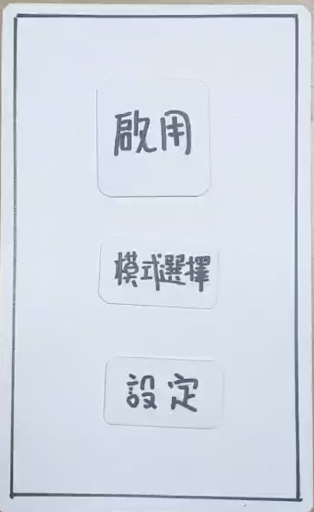 啟用
模式選擇
設定